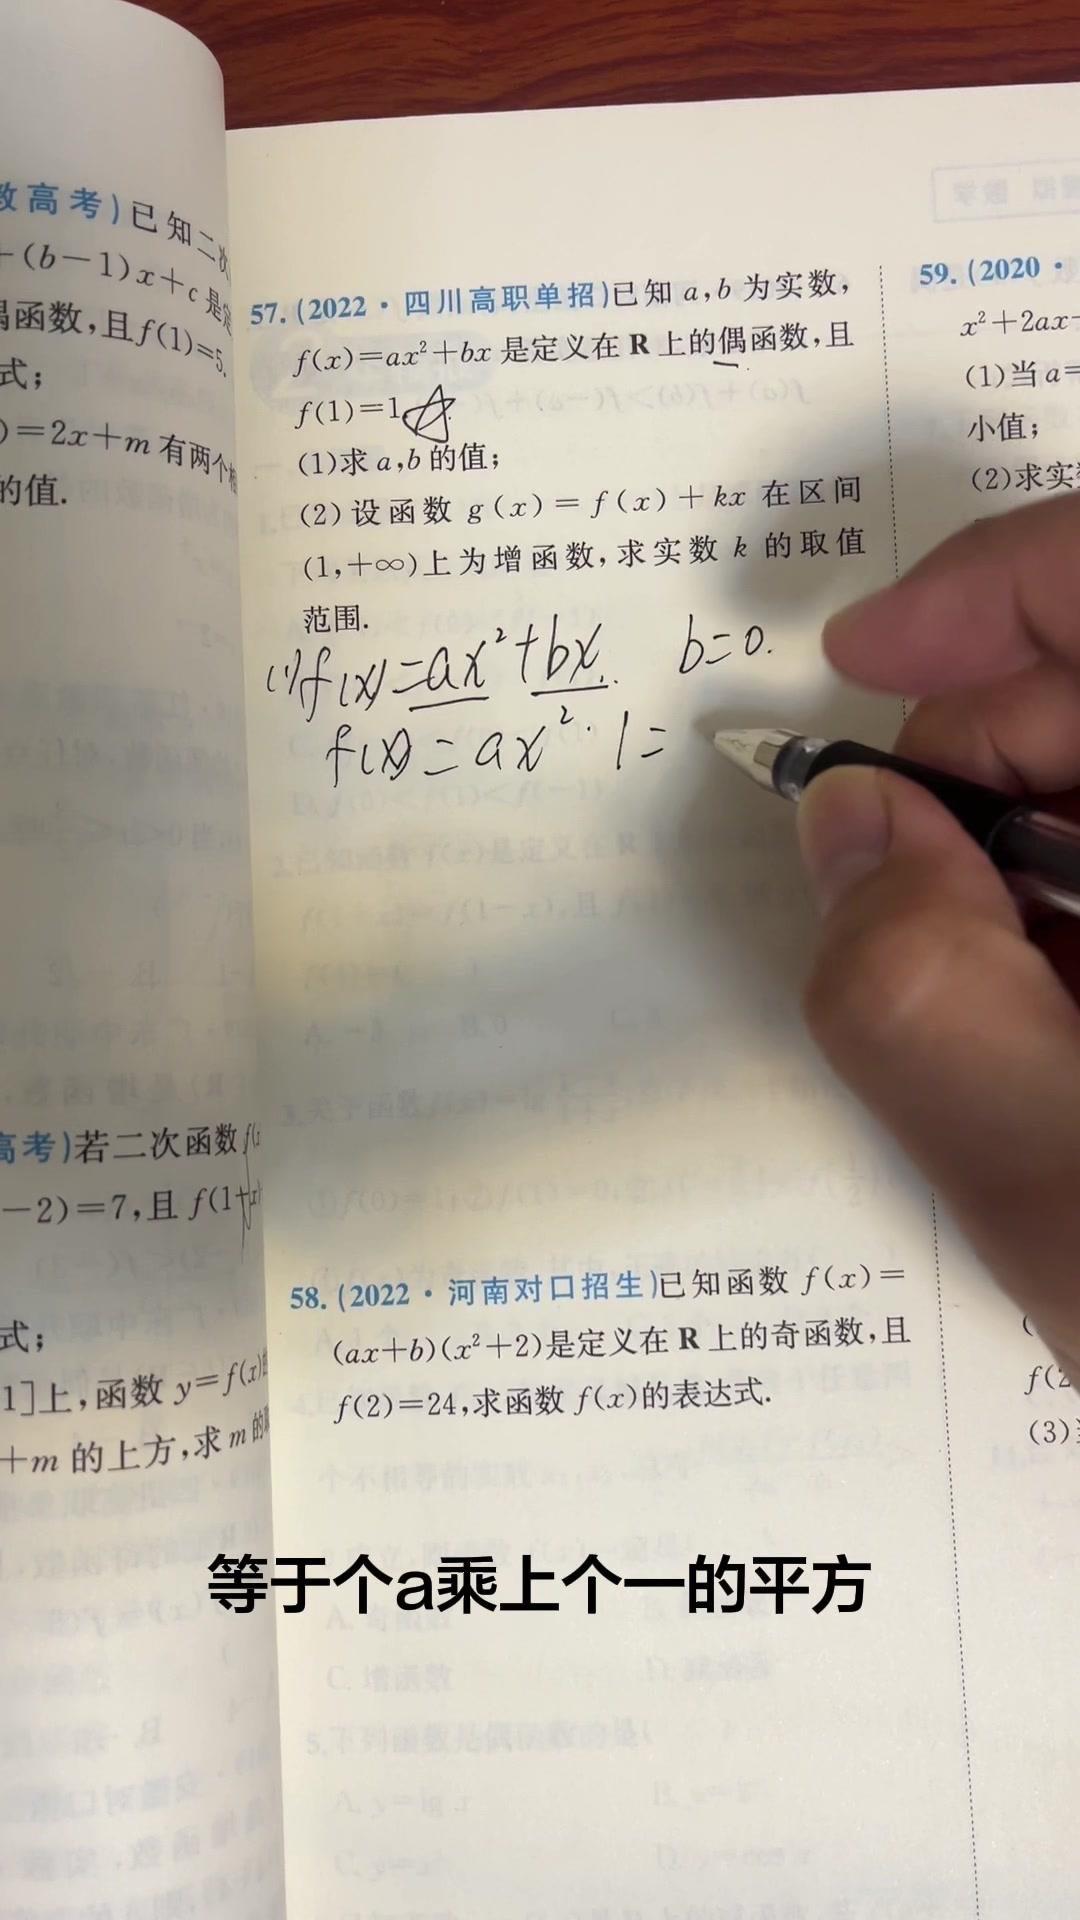 数高考)已知二次
+(b-1)x+c是定
偶函数,且f(1)=5.
式;
)=2x+m有两个相
的值.
高考)若二次函数f(
-2)=7,且f(1+x)
式;
1]上,函数y=f(x)的
+m的上方,求m的取
57.(2022·四川高职单招)已知a,b为实数,
f(x)=ax²+bx是定义在R上的偶函数,且
f(1)=1.
(1)求a,b的值;
(2)设函数g(x)=f(x)+kx在区间
(1,+∞)上为增函数,求实数k的取值
范围.
(1)f(x)=ax²+bx. b=0.
f(x)=ax². 1=
58.(2022·河南对口招生)已知函数f(x)=
(ax+b)(x²+2)是定义在R上的奇函数,且
f(2)=24,求函数f(x)的表达式.
59.(2020·
x²+2ax-
(1)当a=
小值;
(2)求实数
f(2
(3)
等于个a乘上个一的平方